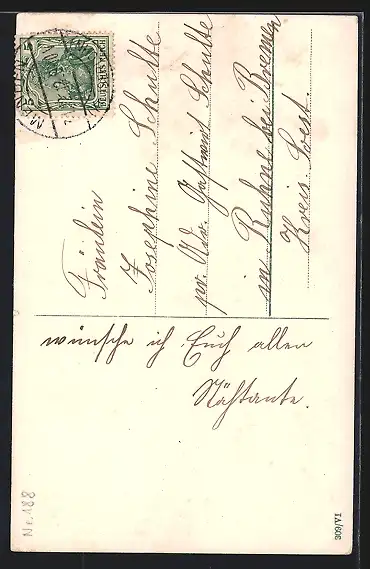 Fräulein
Josephine Schulte
pr. Adr. Gastwirt Schulte
in Ruhne bei Bremen
Kreis Soest.
wünsche ich Euch allen
Nähtante.
DEUTSCHES REICH
5
MENDEN
No 188
309/VI